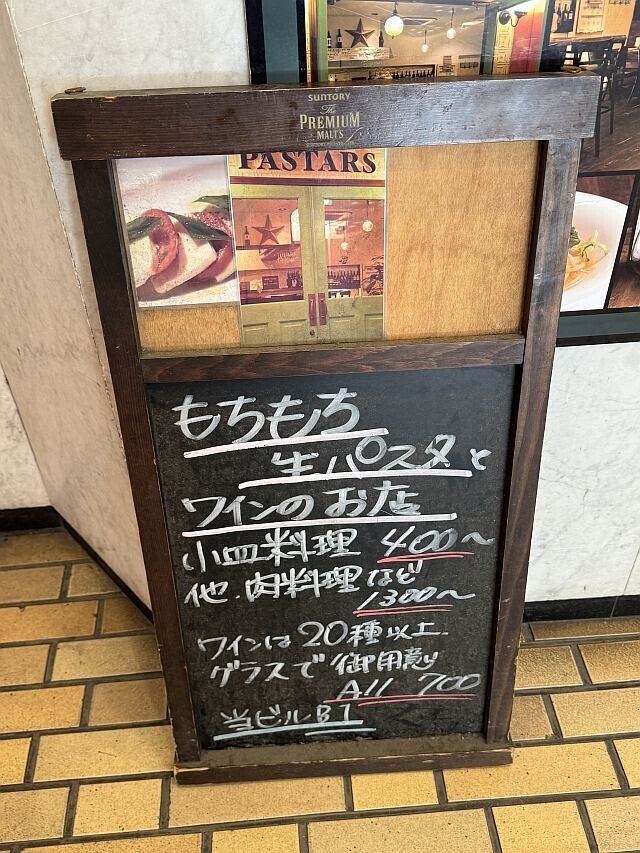 SUNTORY
The
PREMIUM
MALT'S
PASTARS
もちもち
生パスタと
ワインのお店
小皿料理 400〜
他.肉料理など
1300〜
ワインは20種以上.
グラスで御用意
All 700
当ビルB1